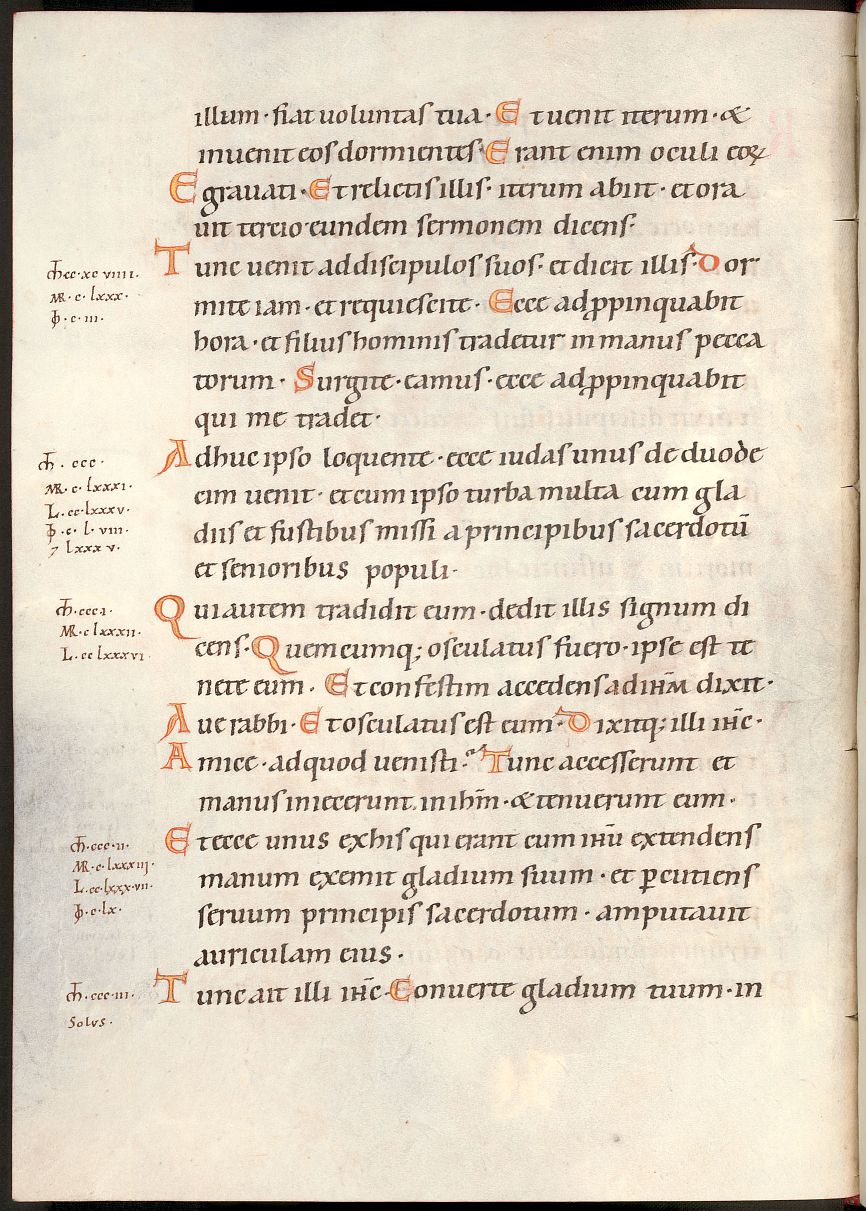 illum · fiat uoluntas tua · Et uenit iterum · &
inuenit eos dormientes · Erant enim oculi eoꝝ
Egrauati · Et relictis illis · iterum abiit · et ora
uit tercio eundem sermonem dicens ·
Tunc uenit ad discipulos suos · et dicit illis · Dor
mite iam · et requiescite · Ecce adp̱ppinquabit
hora · et filius hominis tradetur in manus pecca
torum · Surgite · eamus · ecce adp̱ppinquabit
qui me tradet ·
Adhuc ipso loquente · ecce iudas unus de duode
cim uenit · et cum ipso turba multa cum gla
diis et fustibus missi a principibus sacerdotū
et senioribus populi ·
Qui autem tradidit eum · dedit illis signum di
cens · Quemcumq; osculatus fuero · ipse est te
nete eum · Et confestim accedens ad ihm̅ dixit ·
Aue rabbi · Et osculatus est eum · Dixitq; illi ihc̅ ·
Amice · ad quod uenisti · Tunc accesserunt et
manus iniecerunt in ihm̅ · & tenuerunt eum ·
Et ecce unus ex his qui erant cum ihu̅ extendens
manum exemit gladium suum · et ꝑcutiens
seruum principis sacerdotum · amputauit
auriculam eius ·
Tunc ait illi ihc̅ · Conuerte gladium tuum · in
cc · xc viiii ·
MR · c · lxxx ·
c · iii ·
ccc ·
MR · c · lxxxi ·
L · cc · lxxxv ·
c · l · viii ·
⁊ lxxx v ·
ccc i ·
MR · c lxxxii ·
L · cc lxxxvi ·
ccc · ii ·
MR · c · lxxxiij ·
L · cc · lxxx · vii ·
c · lx ·
ccc · iii ·
Solus ·